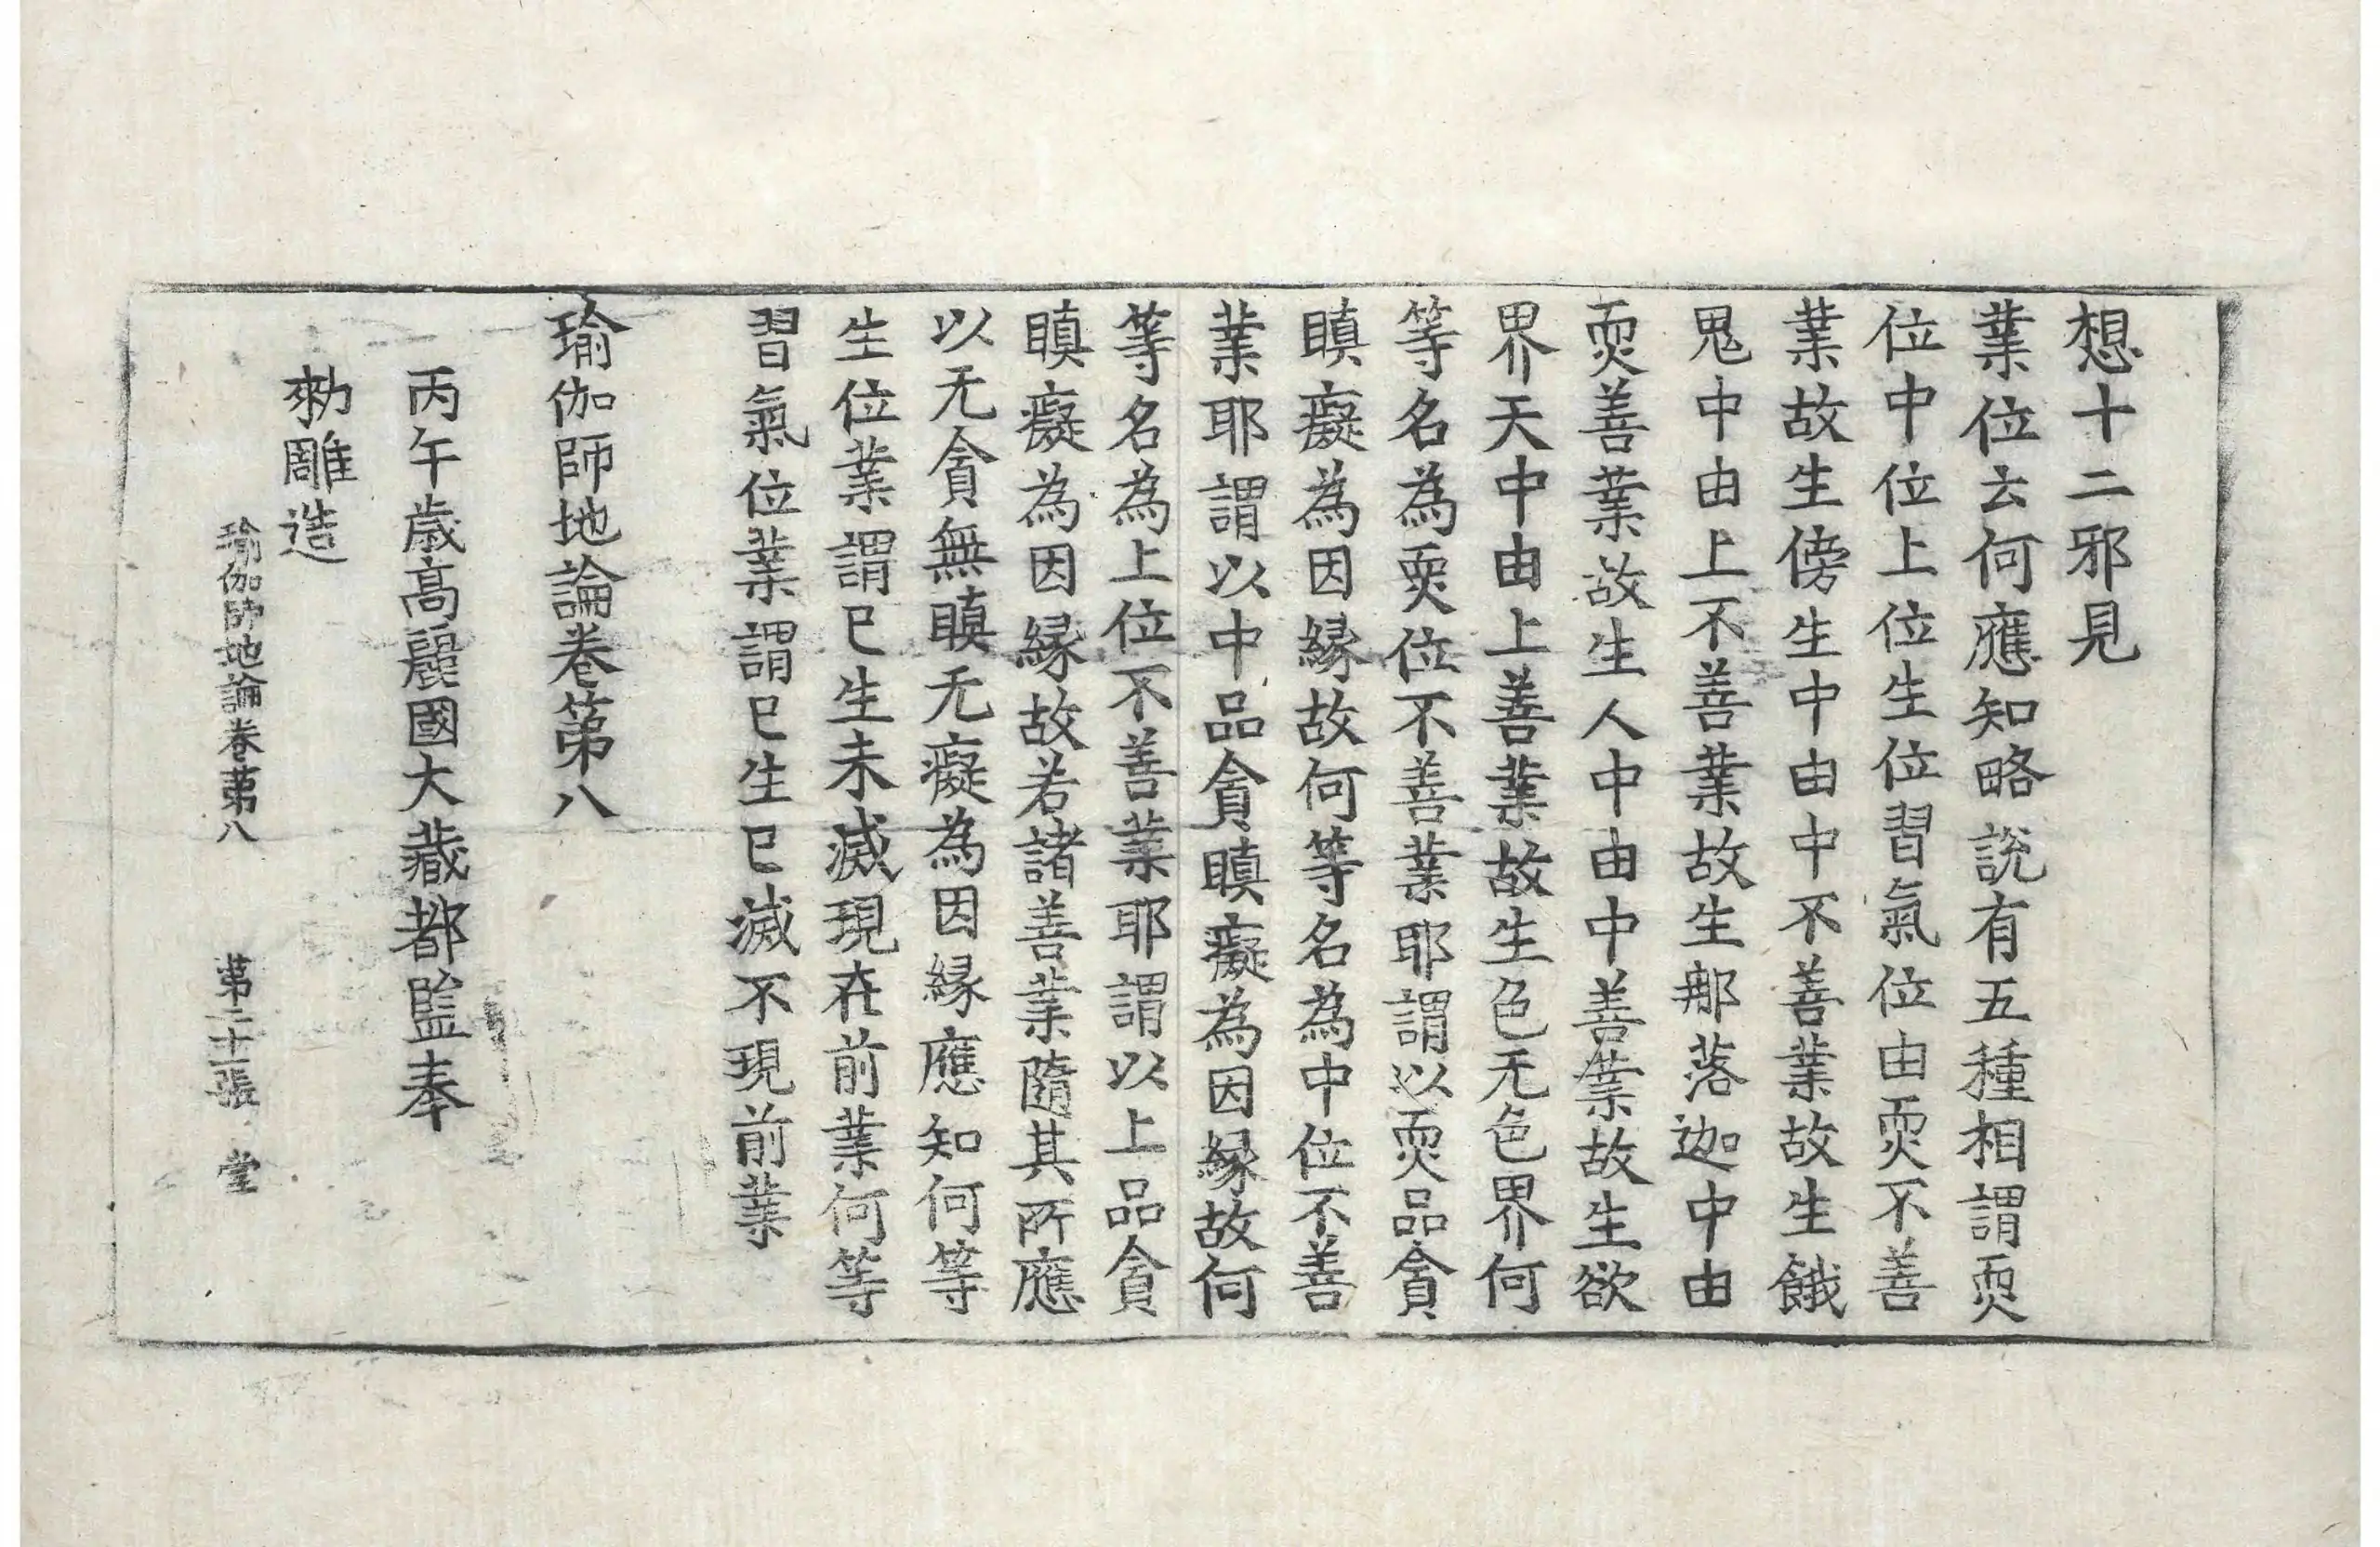 想十二邪見
業位云何應知略說有五種相謂耎
位中位上位生位習氣位由耎不善
業故生傍生中由中不善業故生餓
鬼中由上不善業故生那落迦中由
耎善業故生人中由中善業故生欲
界天中由上善業故生色无色界何
等名為耎位不善業耶謂以耎品貪
瞋癡為因緣故何等名為中位不善
業耶謂以中品貪瞋癡為因緣故何
等名為上位不善業耶謂以上品貪
瞋癡為因緣故若諸善業隨其所應
以无貪無瞋无癡為因緣應知何等
生位業謂已生未滅現在前業何等
習氣位業謂已生已滅不現前業
瑜伽師地論卷第八
丙午歲高麗國大藏都監奉
勑雕造
瑜伽師地論卷第八 第二十張 堂